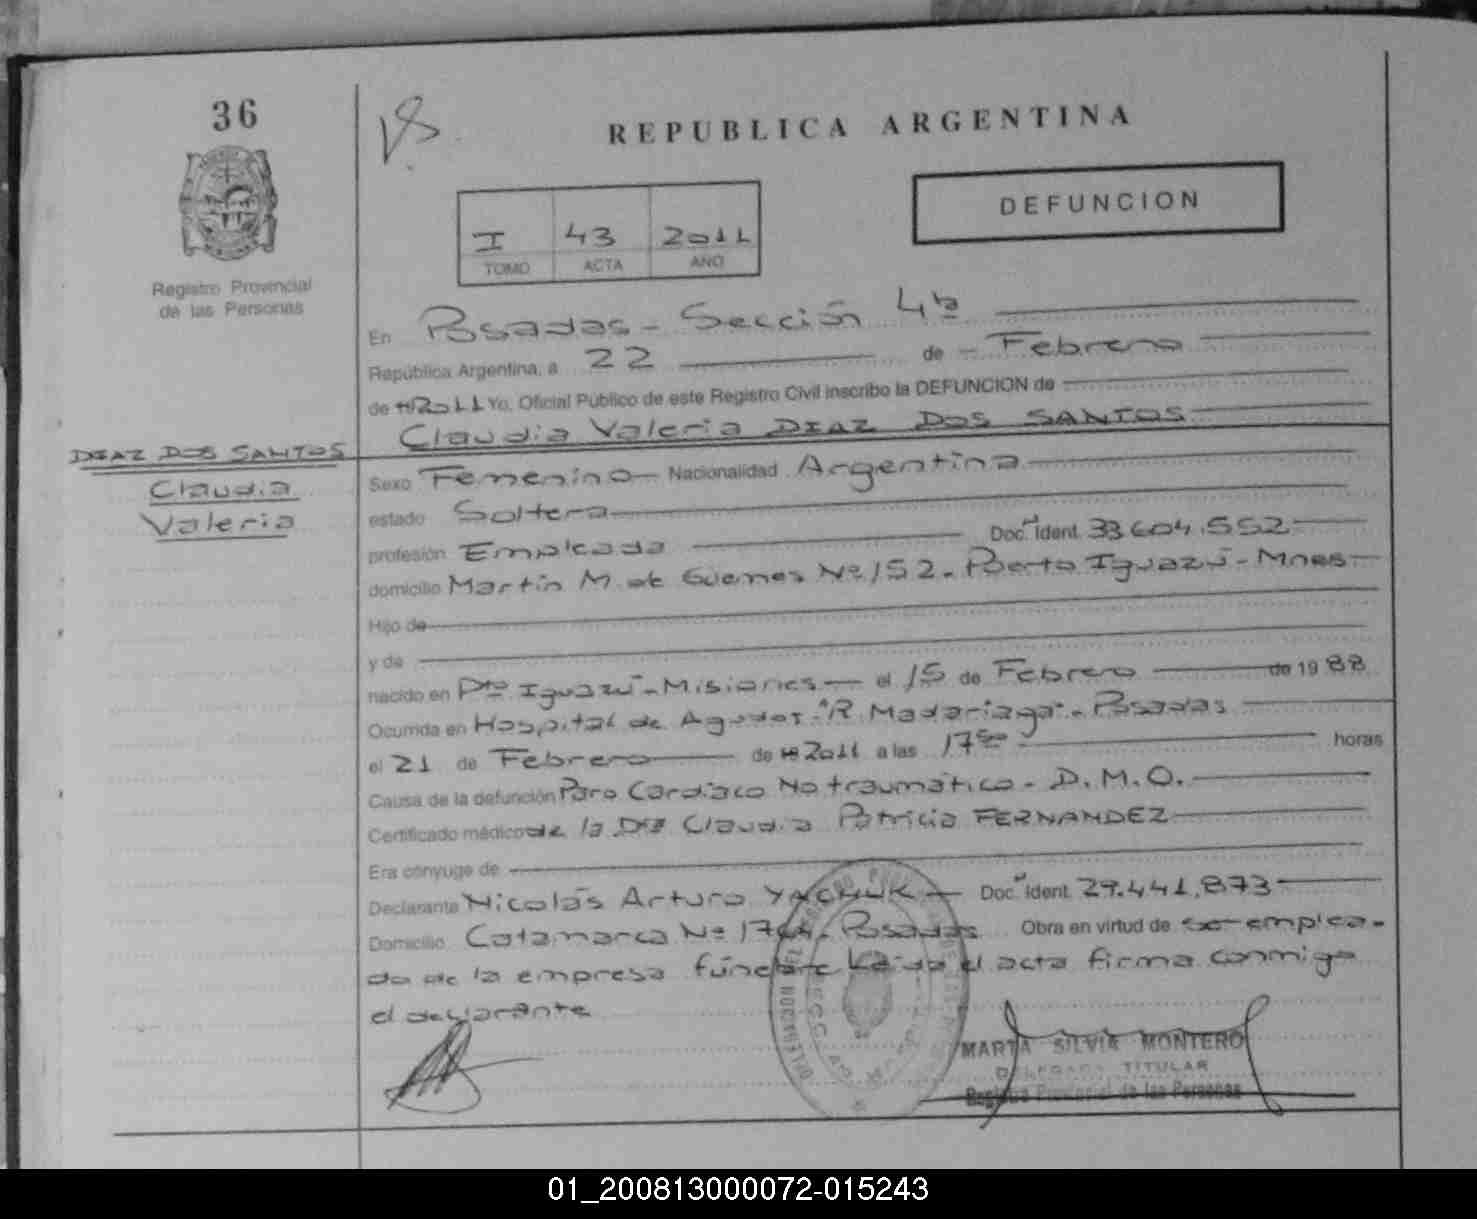 36
REPUBLICA ARGENTINA
DEFUNCION
I 43 2011
TOMO ACTA AÑO
Registro Provincial
de las Personas
En Posadas - Sección 4ta
República Argentina, a 22 de Febrero
de 2011 Yo, Oficial Público de este Registro Civil inscribo la DEFUNCION de
Claudia Valeria DIAZ DOS SANTOS
DIAZ DOS SANTOS
Claudia
Valeria
Sexo Femenino Nacionalidad Argentina
estado Soltera
profesión Empleada Doc. Ident. 33.604.552
domicilio Martín M. de Guemes Nº 152 - Puerto Iguazú - Mnes
Hijo de
y de
nacido en Pto Iguazú - Misiones el 15 de Febrero de 1988
Ocurrida en Hospital de Agudos "R. Madariaga" - Posadas
el 21 de Febrero de 2011 a las 17 horas
Causa de la defunción Paro Cardiaco No traumático - D.M.O.
Certificado médico de la Dra Claudia Patricia FERNANDEZ
Era cónyuge de
Declarante Nicolás Arturo YACHUK Doc. Ident. 29.441.873
Domicilio Catamarca Nº Posadas Obra en virtud de ser emplea-
do de la empresa fúnebre Leída el acta firma conmigo
el declarante
MARTA SILVIA MONTERO
DELEGADA TITULAR
Registro Provincial de las Personas
01_200813000072-015243